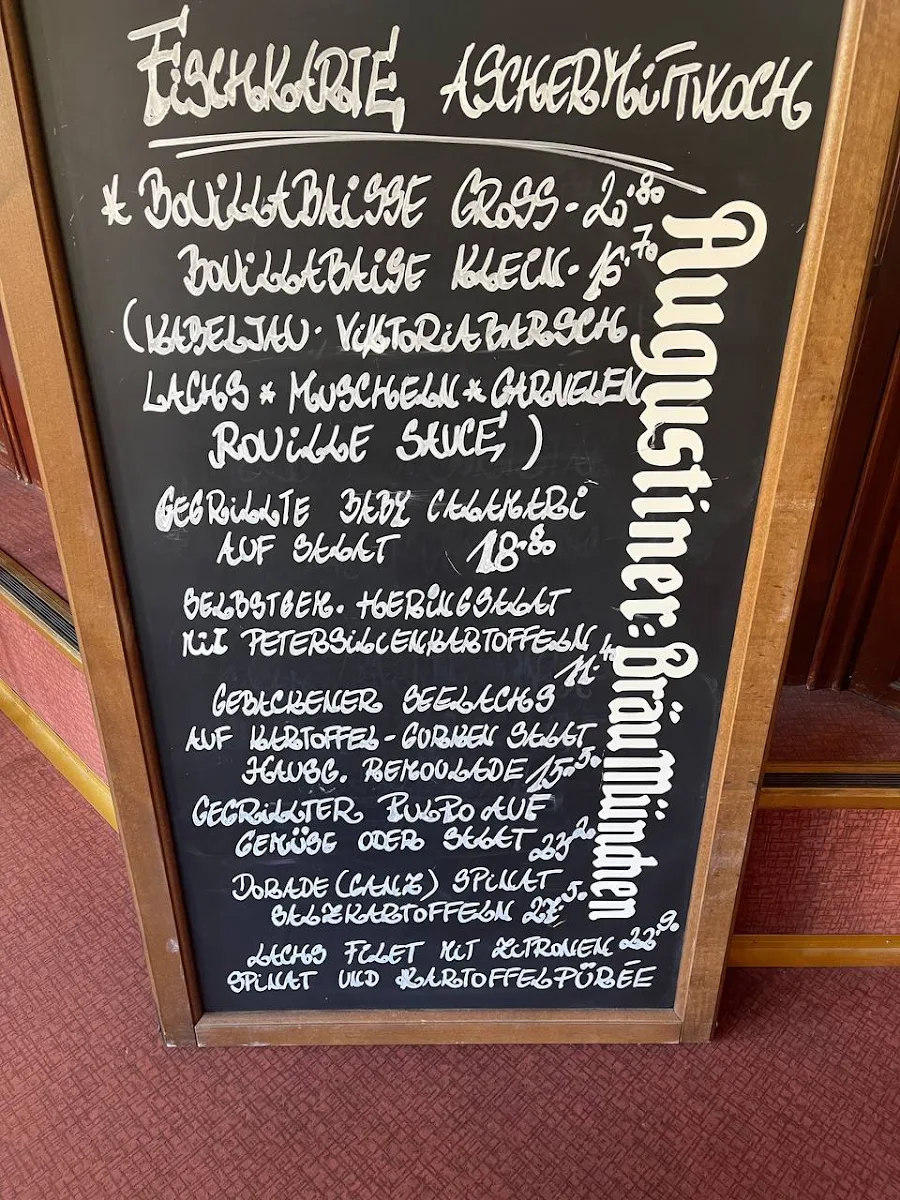 FISCHKARTE ASCHERMITTWOCH
* BOUILLABAISSE GROSS - 20.80
BOUILLABAISE KLEIN - 16.70
(KABELJAU · VIKTORIABARSCH
LACHS * MUSCHELN * GARNELEN
ROUILLE SAUCE)
GEGRILLTE BABY CALAMARI
AUF SALAT 18.80
SELBSTGEM. HERINGSALAT
MIT PETERSILIENKARTOFFELN 11.40
GEBACKENER SEELACHS
AUF KARTOFFEL-GURKEN SALAT
HAUSG. REMOULADE 15.50
GEGRILLTER PULPO AUF
GEMÜSE ODER SALAT 23.20
DORADE (GANZ) SPINAT
SALZKARTOFFELN 27.50
LACHS FILET MIT ZITRONEN 22.90
SPINAT UND KARTOFFELPÜRÉE
Augustiner-Bräu München